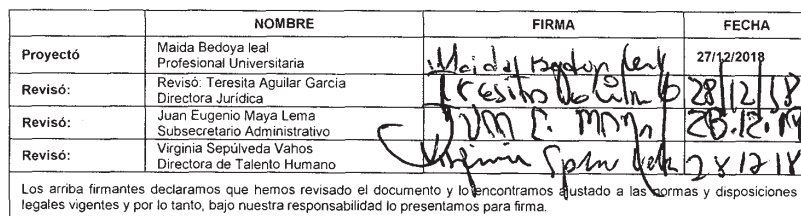 NOMBRE FIRMA FECHA
Proyectó Maida Bedoya leal
Profesional Universitaria Maida Bedoya leal 27/12/2018
Revisó: Revisó: Teresita Aguilar García
Directora Jurídica Teresita 28/12/18
Revisó: Juan Eugenio Maya Lema
Subsecretario Administrativo Juan E. Maya 28.12.18
Revisó: Virginia Sepúlveda Vahos
Directora de Talento Humano Virginia 28 12 18
Los arriba firmantes declaramos que hemos revisado el documento y lo encontramos ajustado a las normas y disposiciones
legales vigentes y por lo tanto, bajo nuestra responsabilidad lo presentamos para firma.